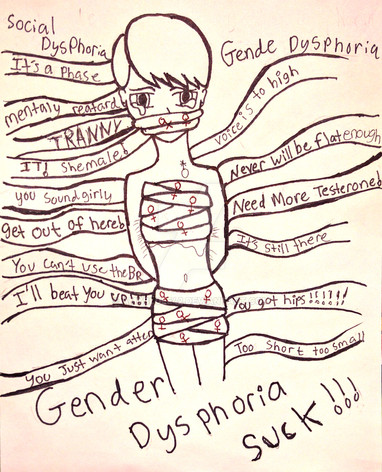 Social
Dysphoria
It's a phase
mentaly reatard
TRANNY
IT! Shemale!
you sound girly
get out of here!
You can't use the BR
I'll beat you up!!!
You Just want atten
Gende Dysphoria
voice is to high
Never will be flat enough
Need More Testerone!
It's still there
You got hips!!!!!!
Too short too small
Gender
Dysphoria
suck!!!